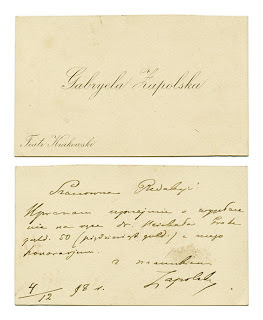 Gabryela Zapolska
Teatr Krakowski
Szanowna Redakcyo!
Upraszam uprzejmie o wypłace
nie na ręce dr.
guld. 50 (pięćdziesiąt guld.) z mego
honoraryum.
Z szacunkiem
Zapolska
4/12 98 r.